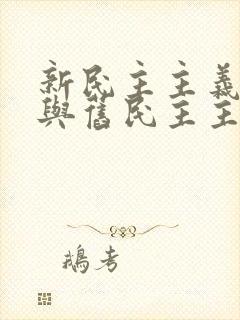 新民主主義
與舊民主主
鵝考